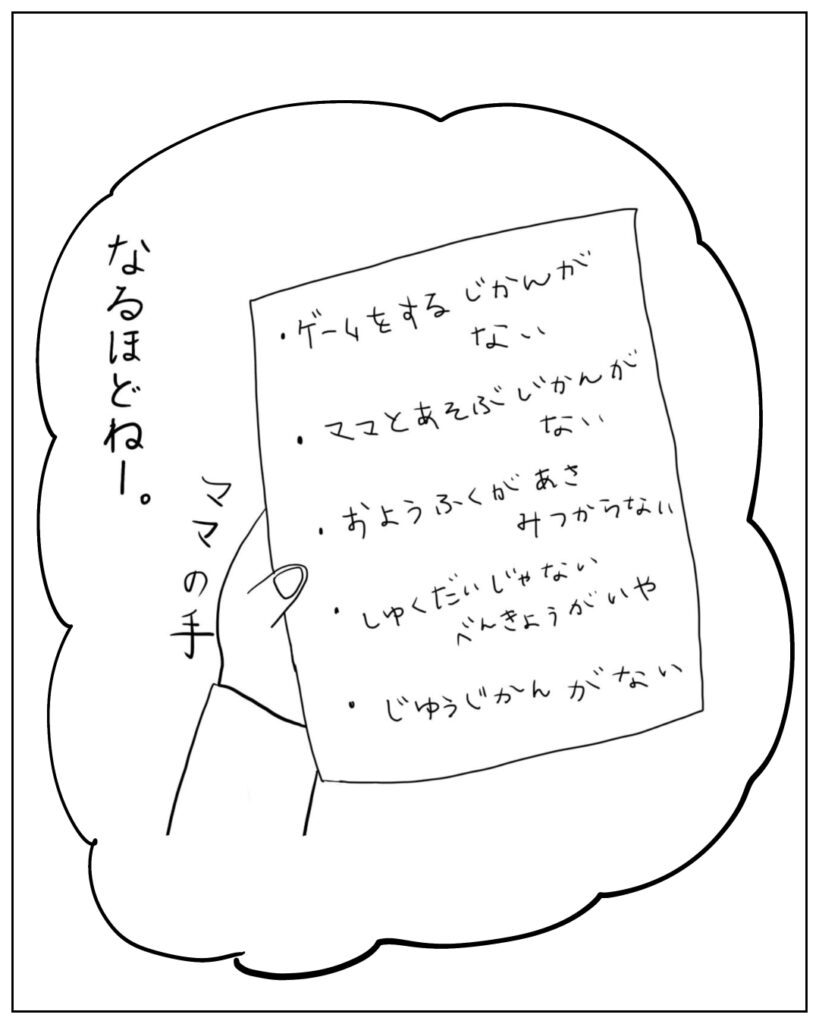 なるほどねー。
ママの手
・ゲームをするじかんが
ない
・ママとあそぶじかんが
ない
・おようふくがあさ
みつからない
・しゅくだいじゃない
べんきょうがいや
・じゆうじかんがない